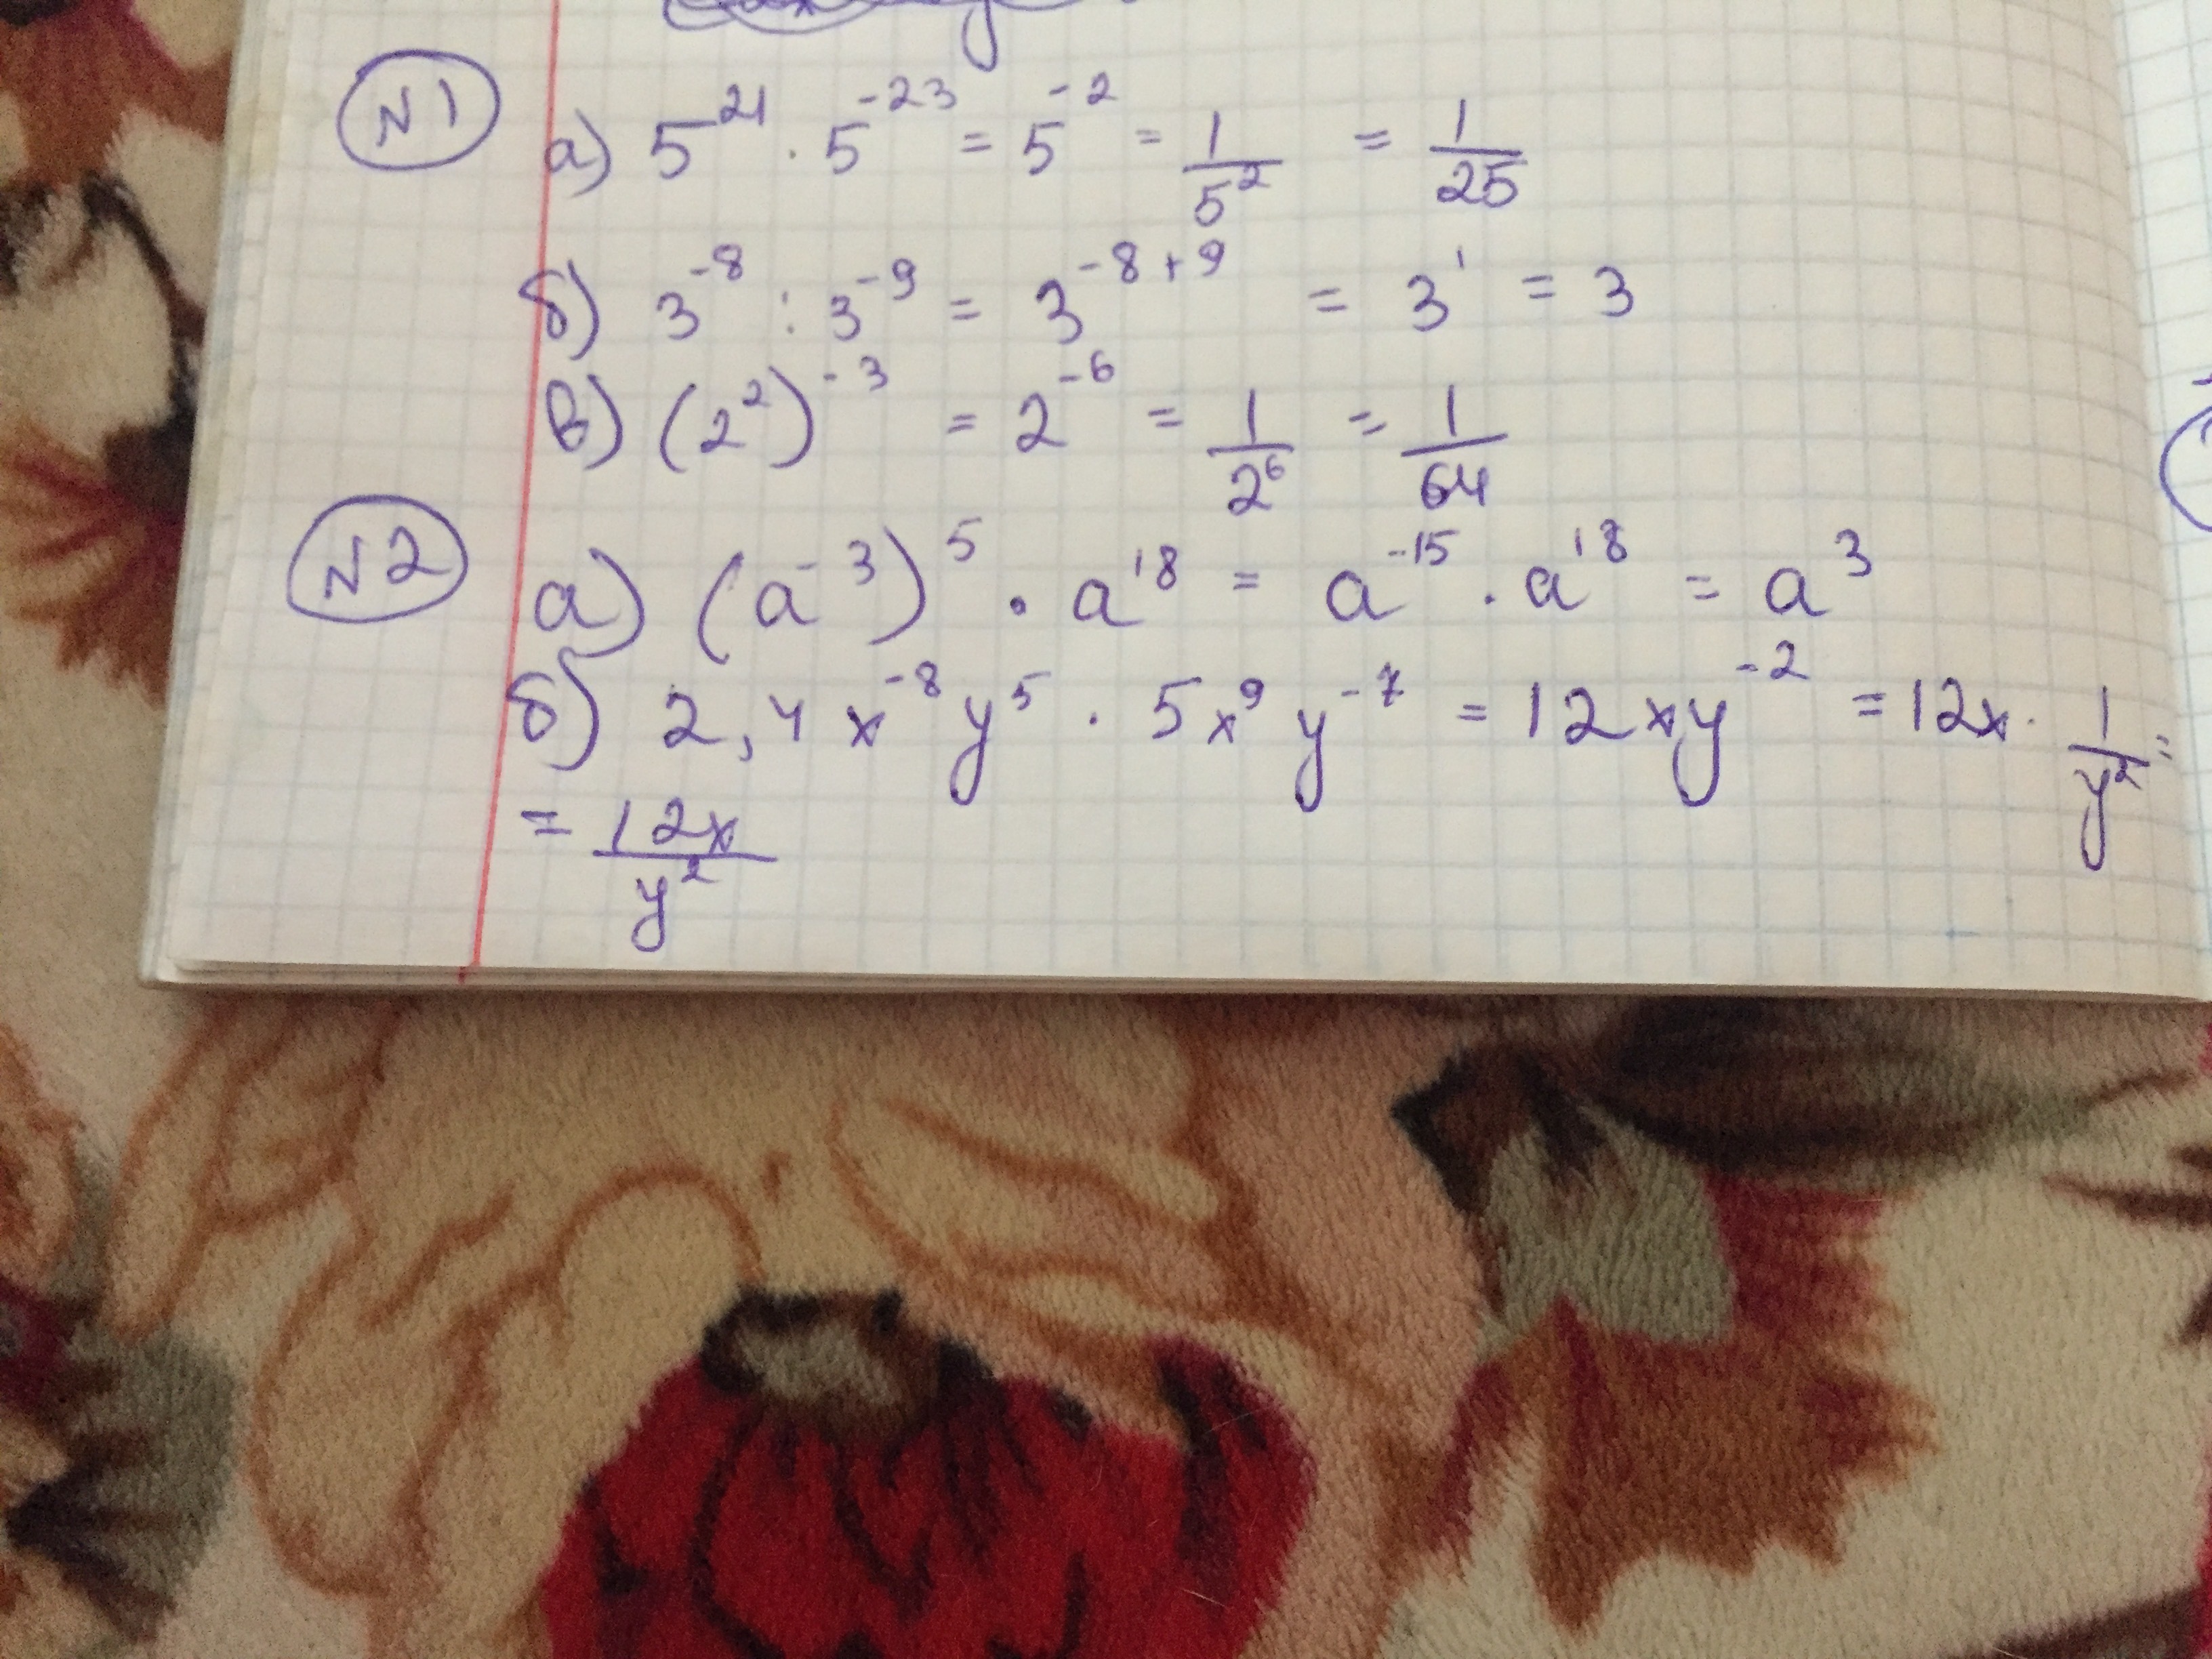 N1
а) 5²¹ · 5⁻²³ = 5⁻² = 1/5² = 1/25
б) 3⁻⁸ : 3⁻⁹ = 3⁻⁸⁺⁹ = 3¹ = 3
в) (2²)⁻³ = 2⁻⁶ = 1/2⁶ = 1/64
N2
а) (a⁻³)⁵ · a¹⁸ = a⁻¹⁵ · a¹⁸ = a³
б) 2,4x⁻⁸y⁵ · 5x⁹y⁻⁷ = 12xy⁻² = 12x · 1/y² =
= 12x/y²